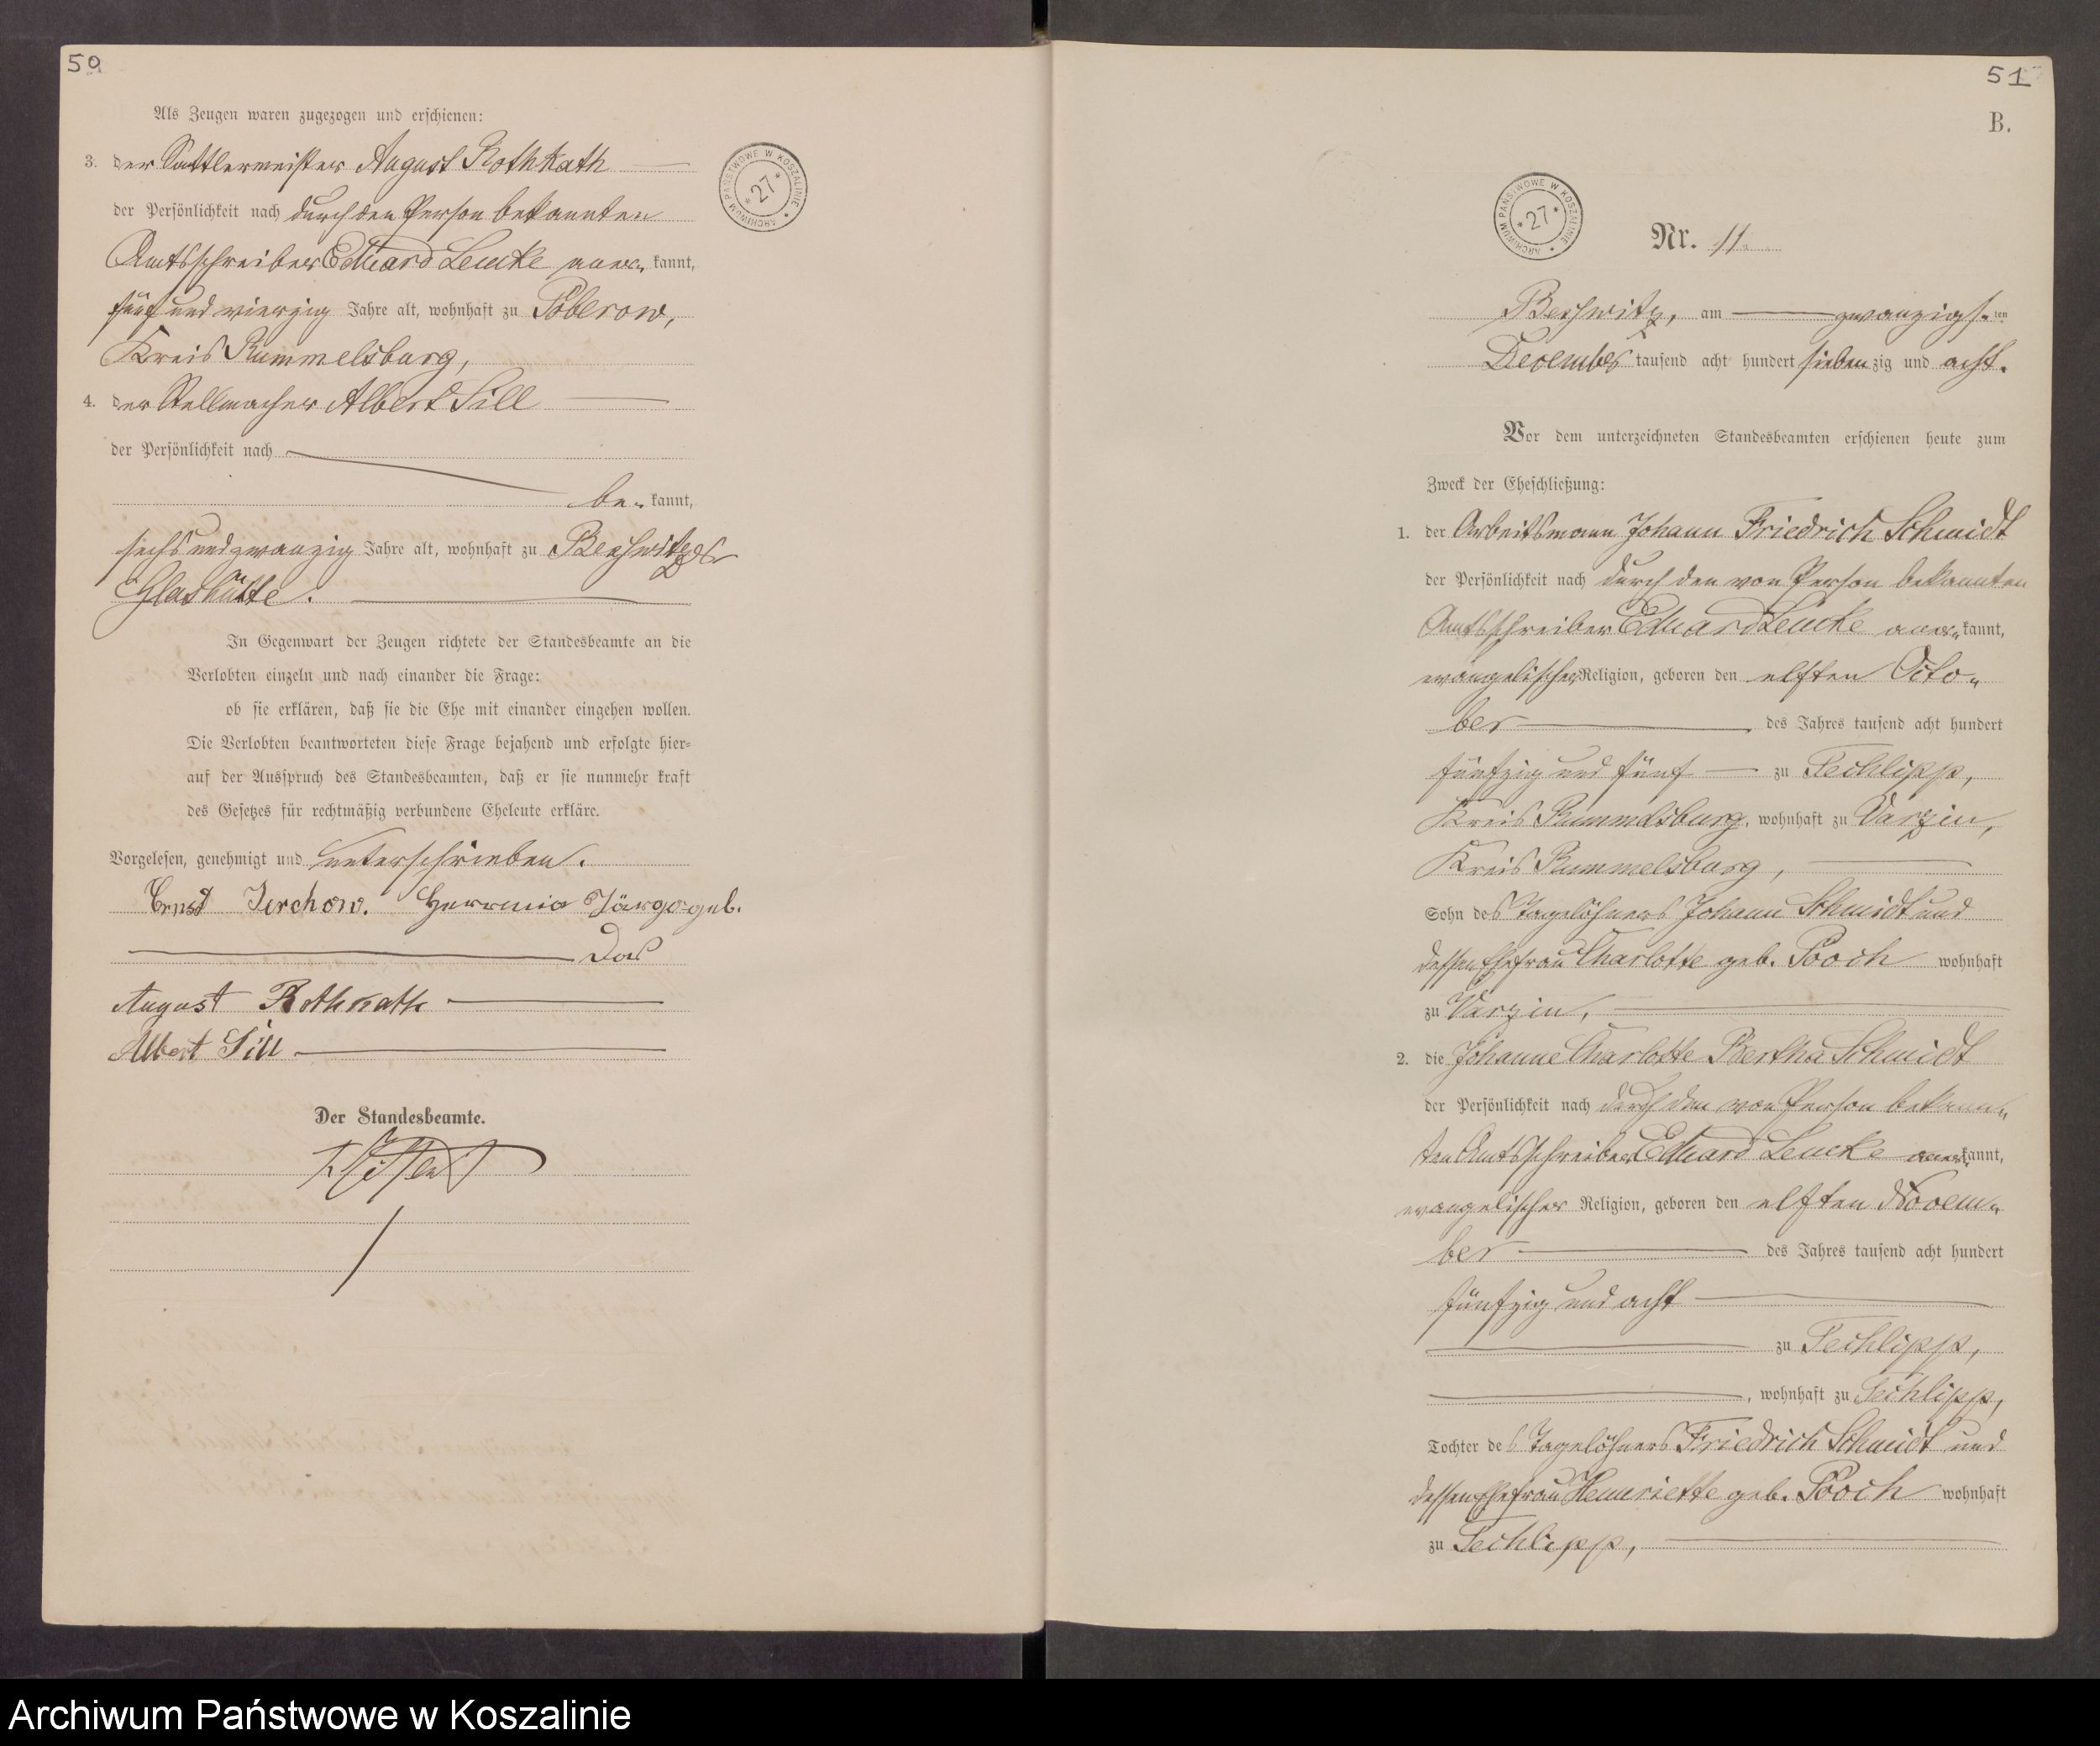 50
Als Zeugen waren zugezogen und erschienen:
3. der Sattlermeister August Rothkath
der Persönlichkeit nach durch den Person bekannten
Amtsschreiber Eduard Lemke aner- kannt,
fünf und vierzig Jahre alt, wohnhaft zu Poberow,
Kreis Rummelsburg,
4. der Stellmacher Albert Sill
der Persönlichkeit nach
be- kannt,
sechs und zwanzig Jahre alt, wohnhaft zu
Glashütte.
In Gegenwart der Zeugen richtete der Standesbeamte an die
Verlobten einzeln und nach einander die Frage:
ob sie erklären, daß sie die Ehe mit einander eingehen wollen.
Die Verlobten beantworteten diese Frage bejahend und erfolgte hier-
auf der Ausspruch des Standesbeamten, daß er sie nunmehr kraft
des Gesetzes für rechtmäßig verbundene Eheleute erkläre.
Vorgelesen, genehmigt und unterschrieben.
Ernst Jerchow. geb.
August Rothkath
Albert Sill
Der Standesbeamte.
ARCHIWUM PAŃSTWOWE W KOSZALINIE
* 27 *
51
B.
ARCHIWUM PAŃSTWOWE W KOSZALINIE
* 27 *
Nr. 11.
Beßwitz, am zwanzigs- ten
December tausend acht hundert siebenzig und acht.
Vor dem unterzeichneten Standesbeamten erschienen heute zum
Zweck der Eheschließung:
1. der Arbeitsmann Johann Friedrich Schmidt
der Persönlichkeit nach durch den von Person bekannten
Amtsschreiber Eduard Lemke aner- kannt,
evangelischer Religion, geboren den elften Octo-
ber des Jahres tausend acht hundert
fünfzig und fünf zu Techlipp,
Kreis Rummelsburg, wohnhaft zu Varzin,
Kreis Rummelsburg,
Sohn des Tagelöhners Johann Schmidt und
dessen Ehefrau Charlotte geb. Pooch wohnhaft
zu Varzin,
2. die Johanne Charlotte Bertha Schmidt
der Persönlichkeit nach durch den von Person bekann-
ten Amtsschreiber Eduard Lemke aner- kannt,
evangelischer Religion, geboren den elften Novem-
ber des Jahres tausend acht hundert
fünfzig und acht
zu Techlipp,
, wohnhaft zu Techlipp,
Tochter des Tagelöhners Friedrich Schmidt und
dessen Ehefrau Henriette geb. Pooch wohnhaft
zu Techlipp,
Archiwum Państwowe w Koszalinie